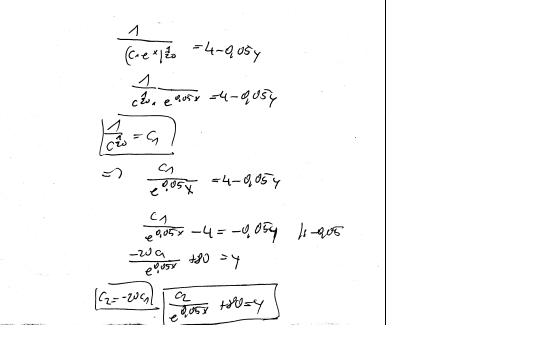 1/(C·e^x)^(1/20) = 4-0,05y
1/(C^(1/20) · e^(0,05x)) = 4-0,05y
1/C^(1/20) = C₁
=> C₁/e^(0,05x) = 4-0,05y
C₁/e^(0,05x) - 4 = -0,05y |:-0,05
-20C₁/e^(0,05x) +80 = y
C₂=-20C₁ C₂/e^(0,05x) +80=y